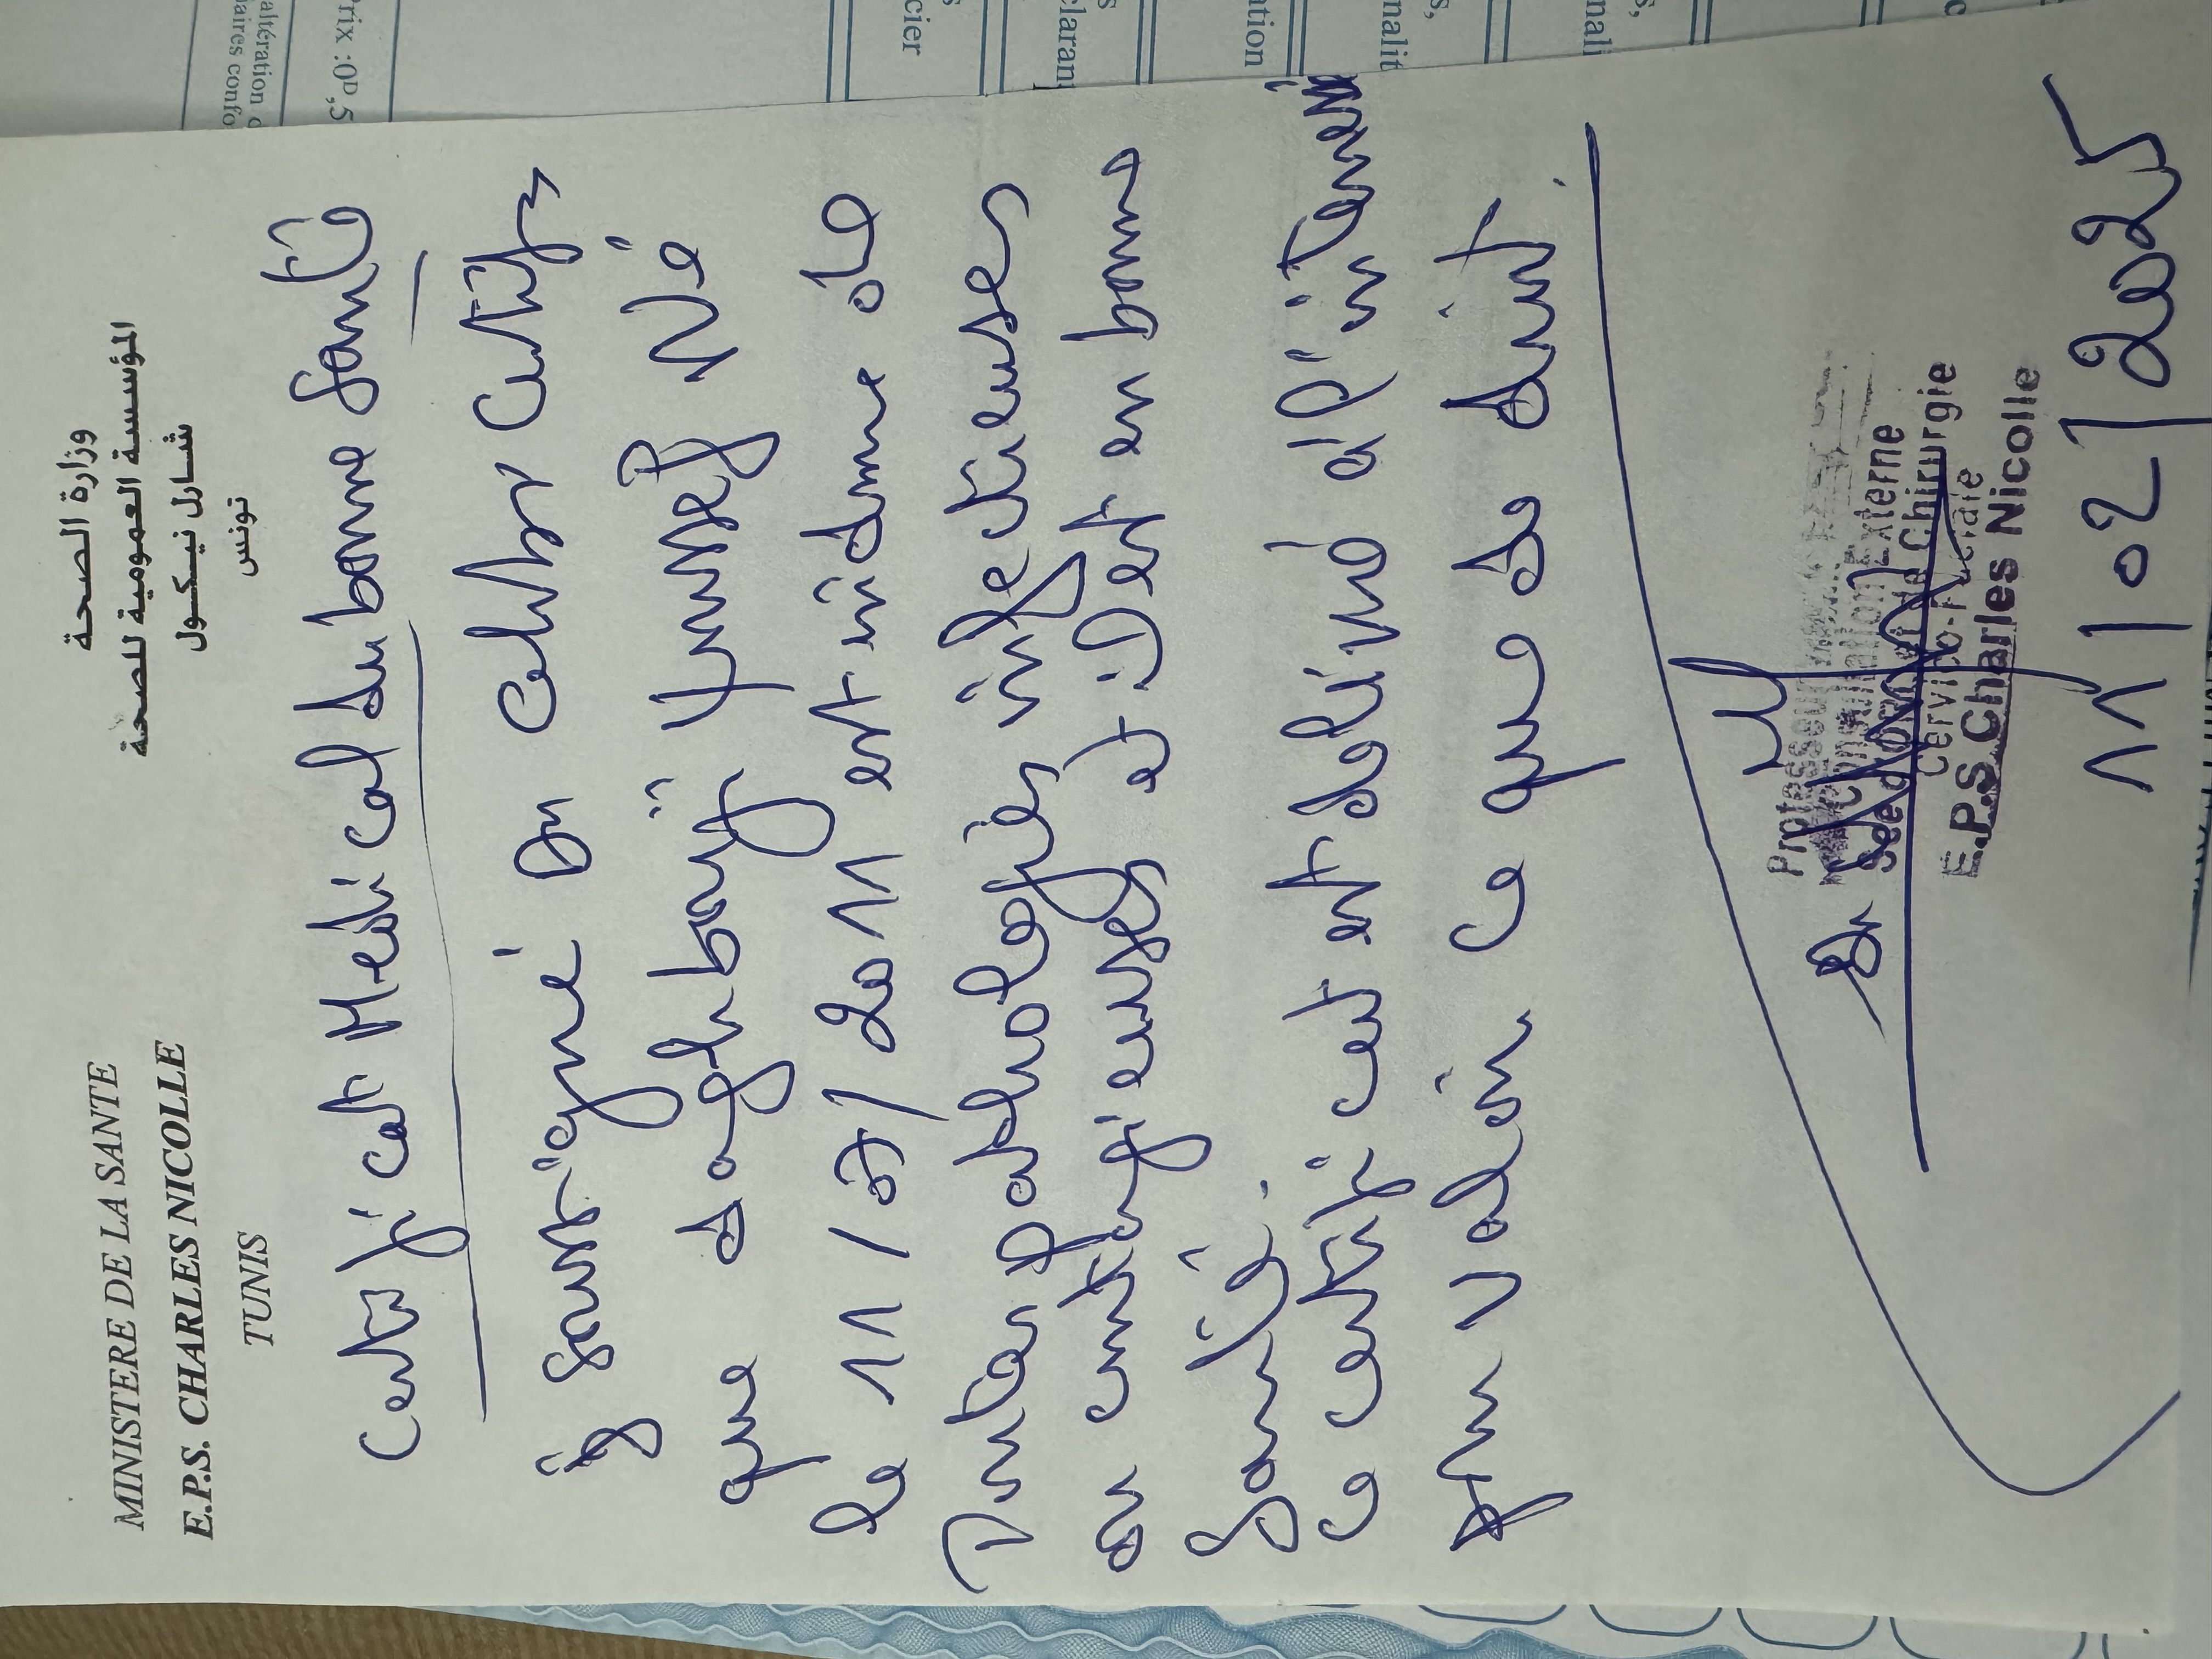 MINISTERE DE LA SANTE
E.P.S. CHARLES NICOLLE
TUNIS
وزارة الصحة
المؤسسة العمومية للصحة
شارل نيكول
تونس
Certificat Medical de bonne Santé
Je soussigné Dr certifie
que Doghbouji Youssef Né
le 11/07/2011 est indemne de
Toutes pathologies infectieuses
ou contagieuses et Il est en bonne
Santé.
Ce certificat est délivré à l'intéressé
pour valoir ce que de droit.
Professeur
Consultation Externe
de Chirurgie
E.P.S. Charles Nicolle
11/02/2025
Prix :0ᴰ,5
altération d
aires confo
cier
clarant
ation
nalit
nali